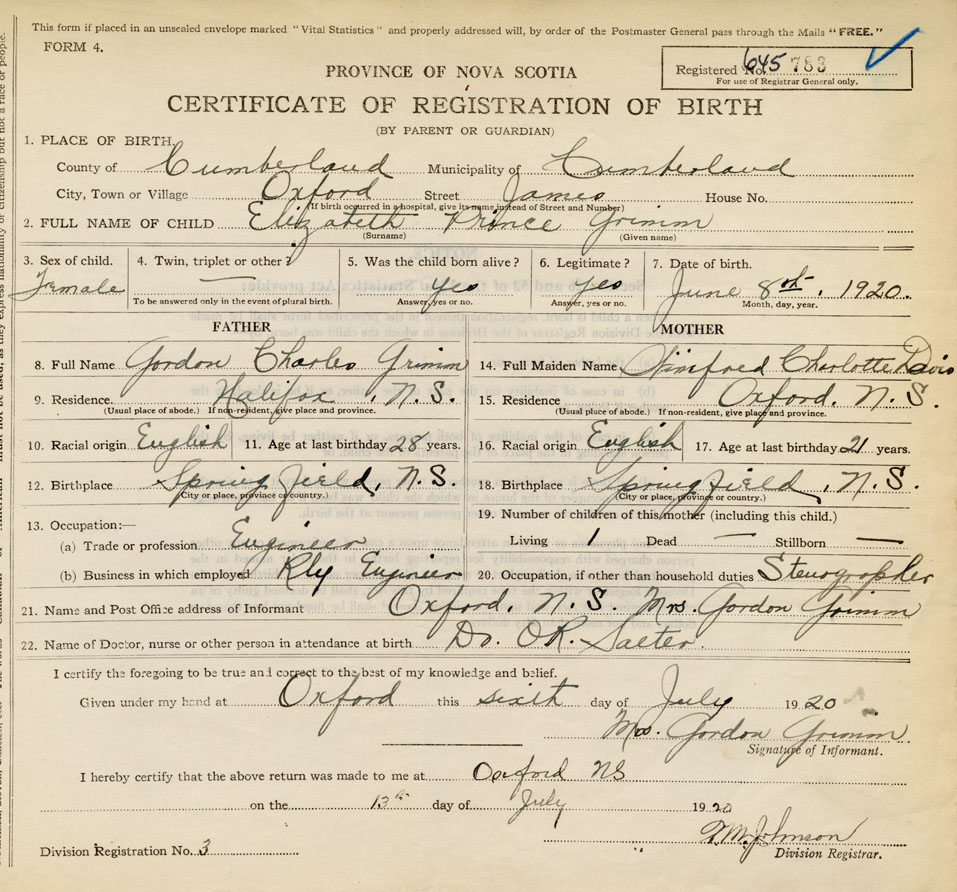 This form if placed in an unsealed envelope marked "Vital Statistics" and properly addressed will, by order of the Postmaster General pass through the Mails "FREE."
FORM 4.
Registered No. 645 783
For use of Registrar General only.
PROVINCE OF NOVA SCOTIA
CERTIFICATE OF REGISTRATION OF BIRTH
(BY PARENT OR GUARDIAN)
1. PLACE OF BIRTH,
County of Cumberland Municipality of Cumberland
City, Town or Village Oxford Street James House No.
(If birth occurred in a hospital, give its name instead of Street and Number)
2. FULL NAME OF CHILD Elizabeth Prince Grimm
(Surname) (Given name)
3. Sex of child. 4. Twin, triplet or other? 5. Was the child born alive? 6. Legitimate? 7. Date of birth.
Female — Yes Yes June 8th. 1920.
To be answered only in the event of plural birth. Answer, yes or no. Answer, yes or no. Month, day, year.
FATHER MOTHER
8. Full Name Gordon Charles Grimm 14. Full Maiden Name Winifred Charlotte Davis
9. Residence. Halifax, N.S. 15. Residence Oxford. N.S.
(Usual place of abode.) If non-resident, give place and province. (Usual place of abode.) If non-resident, give place and province.
10. Racial origin English 11. Age at last birthday 28 years. 16. Racial origin English 17. Age at last birthday 21 years.
12. Birthplace Springfield, N.S. 18. Birthplace Springfield, N.S.
(City or place, province or country.) (City or place, province or country.)
13. Occupation:— 19. Number of children of this mother (including this child.)
(a) Trade or profession Engineer Living 1 Dead — Stillborn —
(b) Business in which employed Rly Engineer 20. Occupation, if other than household duties Stenographer
21. Name and Post Office address of Informant Oxford. N.S. Mrs. Gordon Grimm
22. Name of Doctor, nurse or other person in attendance at birth Dr. Salter.
I certify the foregoing to be true and correct to the best of my knowledge and belief.
Given under my hand at Oxford this sixth day of July 1920
Mrs. Gordon Grimm
Signature of Informant.
I hereby certify that the above return was made to me at Oxford NS
on the 13th day of July 1920
Johnson
Division Registrar.
Division Registration No. 3